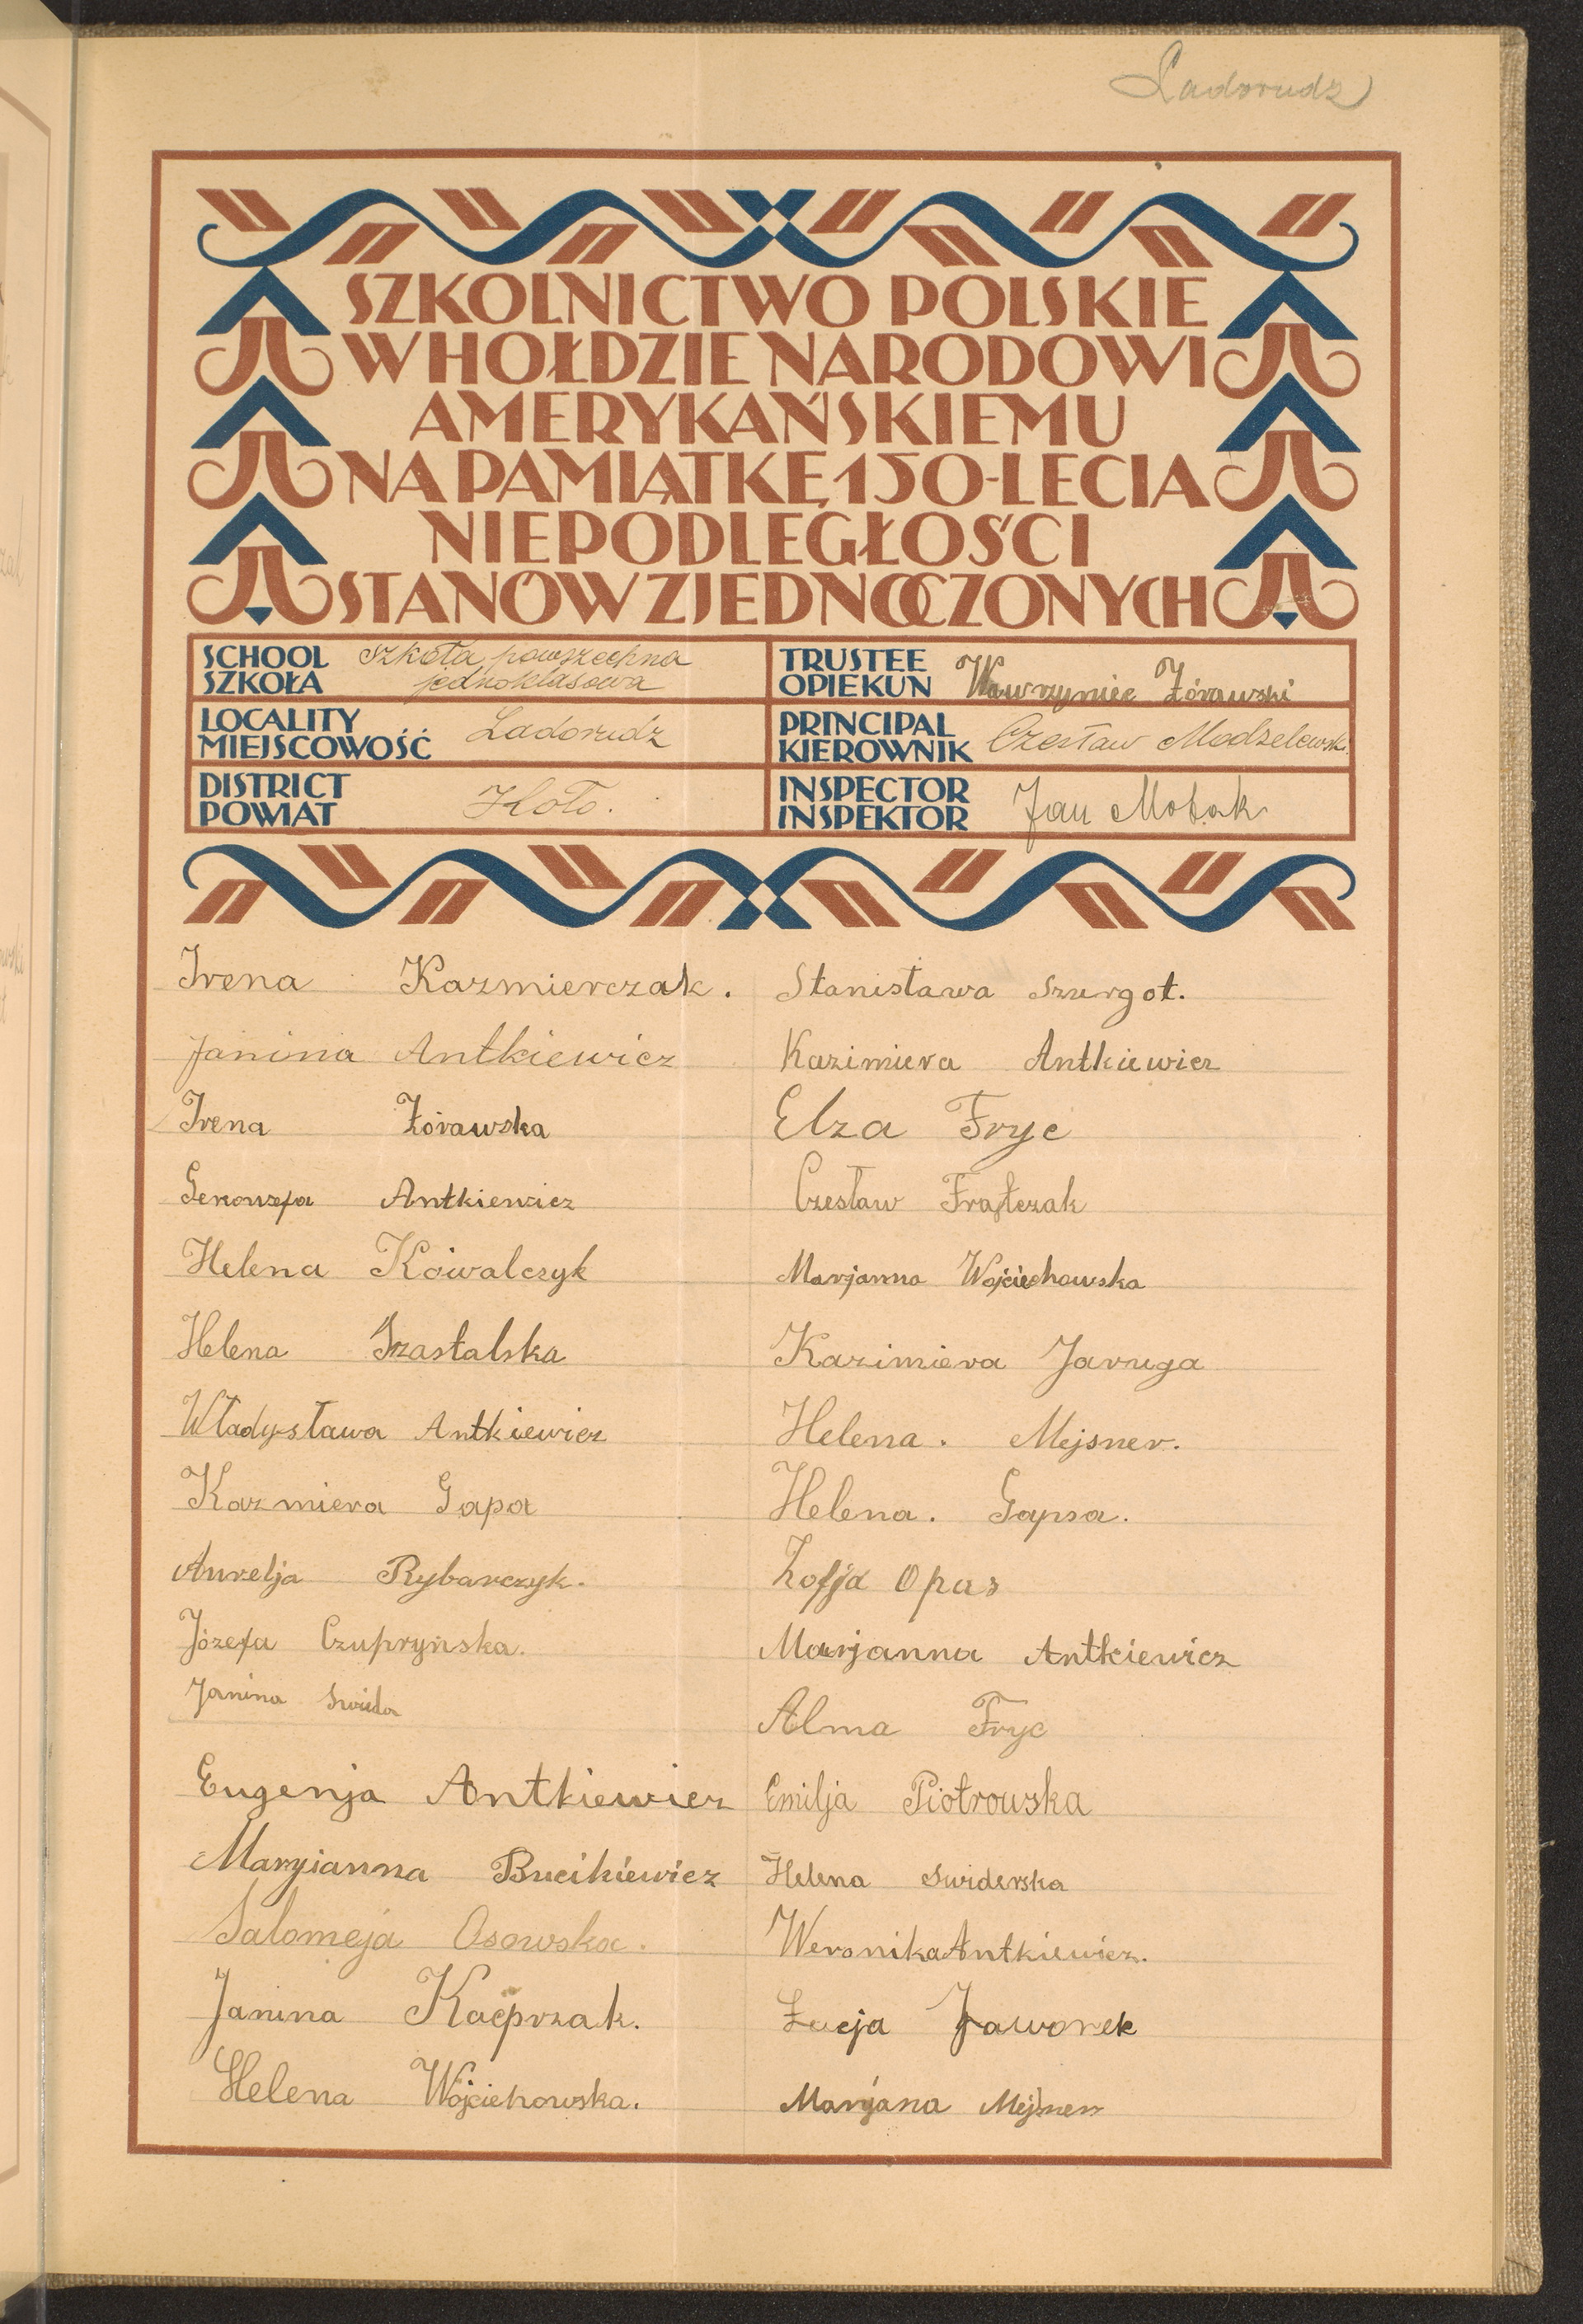 Ladorudz
SZKOLNICTWO POLSKIE
W HOŁDZIE NARODOWI
AMERYKAŃSKIEMU
NA PAMIĄTKĘ 150-LECIA
NIEPODLEGŁOŚCI
STANÓW ZJEDNOCZONYCH
SCHOOL
SZKOŁA
szkoła powszechna
jednoklasowa
TRUSTEE
OPIEKUN
Wawrzyniec Żórawski
LOCALITY
MIEJSCOWOŚĆ
Ladorudz
PRINCIPAL
KIEROWNIK
Czesław Modzelewski
DISTRICT
POWIAT
Koło.
INSPECTOR
INSPEKTOR
Jan
Irena Kazmierczak.
Janina Antkiewicz
Irena Żórawska
Genowefa Antkiewicz
Helena Kowalczyk
Helena
Władysława Antkiewicz
Kazmiera Gapa
Aurelja Rybarczyk.
Józefa Czupryńska.
Janina Swida
Eugenja Antkiewicz
Maryianna Bucikiewicz
Salomeja Osowska.
Janina Kacprzak.
Helena Wojciehowska.
Stanisława Szurgot.
Kazimiera Antkiewicz
Elza Fryc
Czesław Frątczak
Marjanna Wojciechowska
Kazimiera Jaruga
Helena. Mejsner.
Helena. Gapsa.
Zofja Opas
Marjanna Antkiewicz
Alma Fryc
Emilja Piotrowska
Helena Swiderska
Weronika Antkiewicz.
Łucja Jaworek
Marjana Mejsner